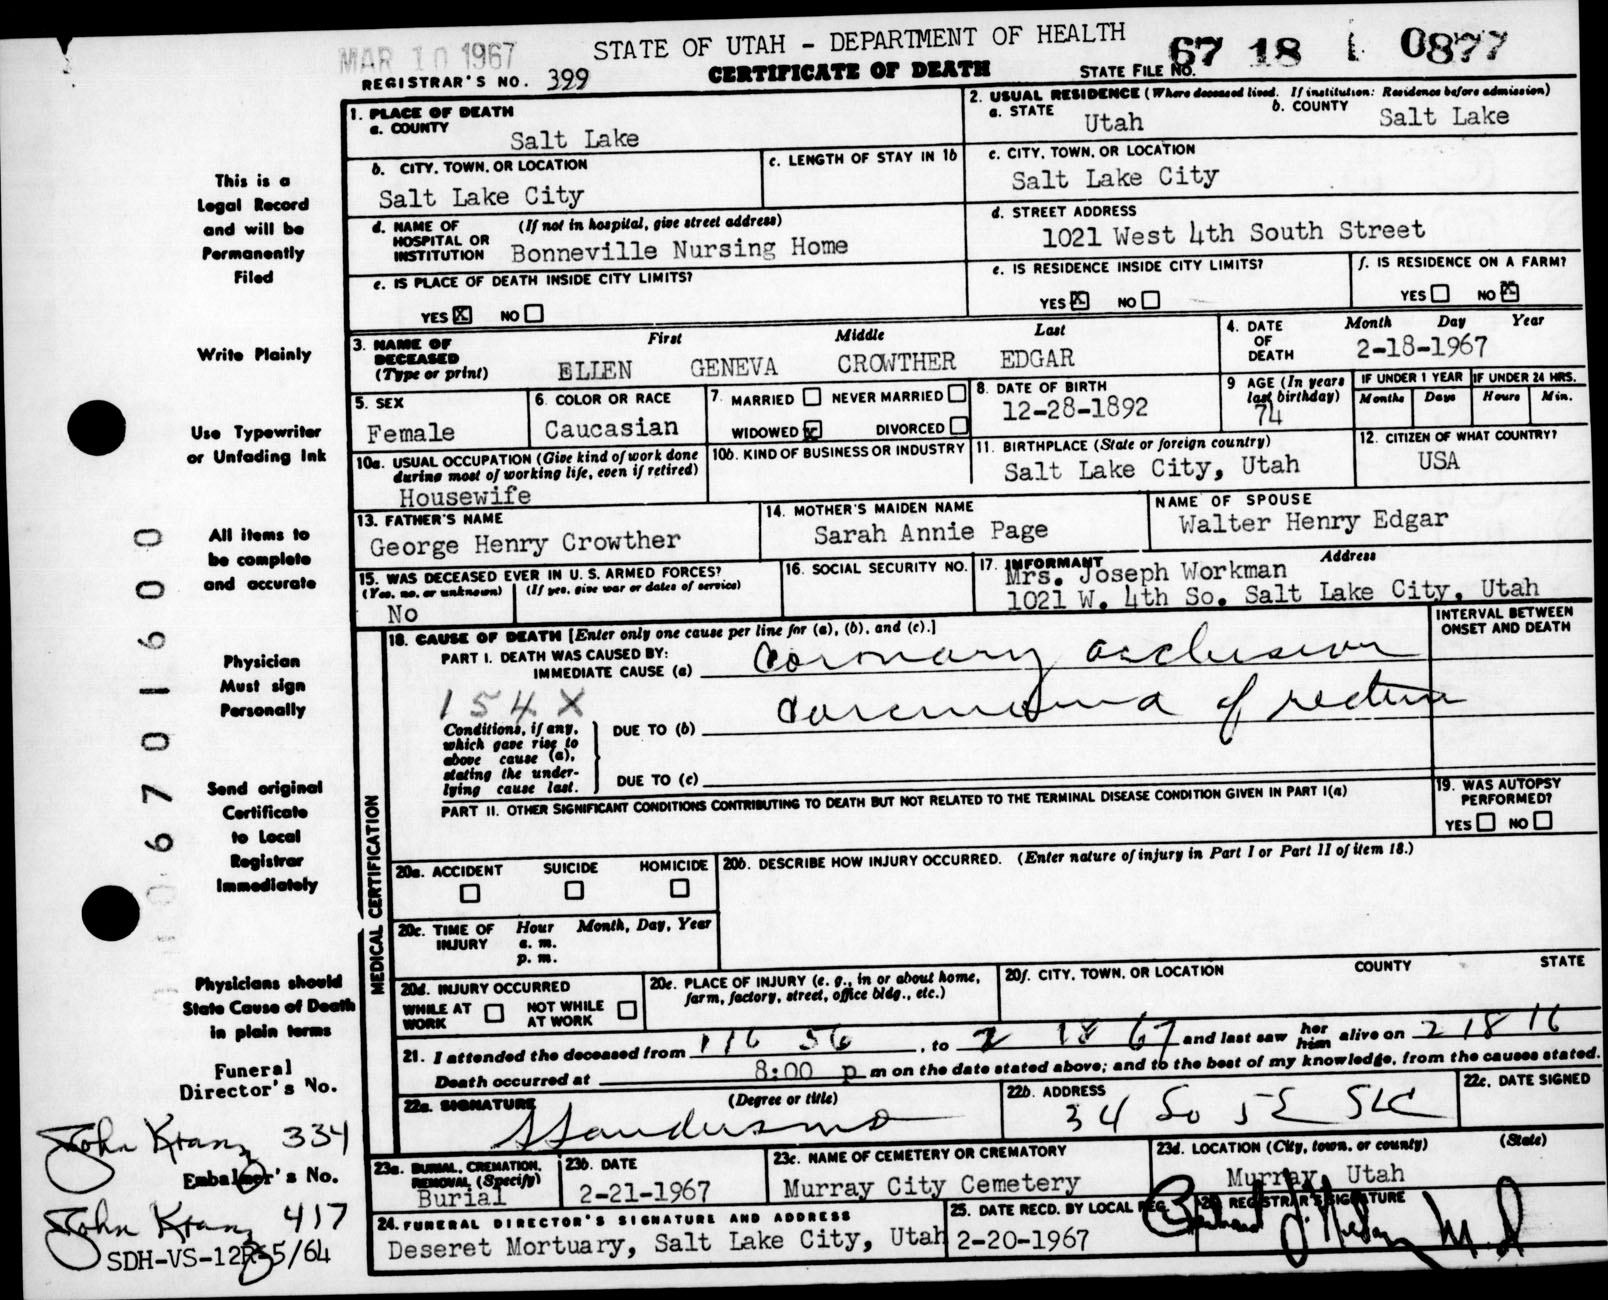 MAR 10 1967
STATE OF UTAH - DEPARTMENT OF HEALTH
67 18 1 0877
REGISTRAR'S NO. 399
CERTIFICATE OF DEATH
STATE FILE NO.
This is a
Legal Record
and will be
Permanently
Filed
Write Plainly
Use Typewriter
or Unfading Ink
All items to
be complete
and accurate
Physician
Must sign
Personally
Send original
Certificate
to Local
Registrar
Immediately
Physicians should
State Cause of Death
in plain terms
Funeral
Director's No.
John Kranz 334
Embalmer's No.
John Kranz 417
SDH-VS-12R-5/64
670 1600
1. PLACE OF DEATH
a. COUNTY
Salt Lake
2. USUAL RESIDENCE (Where deceased lived. If institution: Residence before admission)
a. STATE Utah
b. COUNTY Salt Lake
b. CITY, TOWN, OR LOCATION
Salt Lake City
c. LENGTH OF STAY IN 1b
c. CITY, TOWN, OR LOCATION
Salt Lake City
d. NAME OF HOSPITAL OR INSTITUTION (If not in hospital, give street address)
Bonneville Nursing Home
d. STREET ADDRESS
1021 West 4th South Street
e. IS PLACE OF DEATH INSIDE CITY LIMITS?
YES X NO
e. IS RESIDENCE INSIDE CITY LIMITS?
YES X NO
f. IS RESIDENCE ON A FARM?
YES NO X
3. NAME OF DECEASED (Type or print)
First Middle Last
ELLEN GENEVA CROWTHER EDGAR
4. DATE OF DEATH
Month Day Year
2-18-1967
5. SEX
Female
6. COLOR OR RACE
Caucasian
7. MARRIED NEVER MARRIED
WIDOWED X DIVORCED
8. DATE OF BIRTH
12-28-1892
9 AGE (In years last birthday)
74
IF UNDER 1 YEAR
Months Days
IF UNDER 24 HRS.
Hours Min.
10a. USUAL OCCUPATION (Give kind of work done during most of working life, even if retired)
Housewife
10b. KIND OF BUSINESS OR INDUSTRY
11. BIRTHPLACE (State or foreign country)
Salt Lake City, Utah
12. CITIZEN OF WHAT COUNTRY?
USA
13. FATHER'S NAME
George Henry Crowther
14. MOTHER'S MAIDEN NAME
Sarah Annie Page
NAME OF SPOUSE
Walter Henry Edgar
15. WAS DECEASED EVER IN U. S. ARMED FORCES?
(Yes, no, or unknown) (If yes, give war or dates of service)
No
16. SOCIAL SECURITY NO.
17. INFORMANT Address
Mrs. Joseph Workman
1021 W. 4th So. Salt Lake City, Utah
MEDICAL CERTIFICATION
18. CAUSE OF DEATH [Enter only one cause per line for (a), (b), and (c).]
INTERVAL BETWEEN ONSET AND DEATH
PART I. DEATH WAS CAUSED BY:
IMMEDIATE CAUSE (a) Coronary occlusion
154X
Conditions, if any, which gave rise to above cause (a), stating the underlying cause last.
DUE TO (b) Carcinoma of rectum
DUE TO (c)
PART II. OTHER SIGNIFICANT CONDITIONS CONTRIBUTING TO DEATH BUT NOT RELATED TO THE TERMINAL DISEASE CONDITION GIVEN IN PART I(a)
19. WAS AUTOPSY PERFORMED?
YES NO
20a. ACCIDENT SUICIDE HOMICIDE
20b. DESCRIBE HOW INJURY OCCURRED. (Enter nature of injury in Part I or Part II of item 18.)
20c. TIME OF INJURY Hour Month, Day, Year
a. m.
p. m.
20d. INJURY OCCURRED
WHILE AT WORK NOT WHILE AT WORK
20e. PLACE OF INJURY (e. g., in or about home, farm, factory, street, office bldg., etc.)
20f. CITY, TOWN, OR LOCATION COUNTY STATE
21. I attended the deceased from 1 16 56, to 2 18 67 and last saw her him alive on 2 18 16
Death occurred at 8:00 p m on the date stated above; and to the best of my knowledge, from the causes stated.
22a. SIGNATURE (Degree or title)
22b. ADDRESS
34 So 5E SLC
22c. DATE SIGNED
23a. BURIAL, CREMATION, REMOVAL (Specify)
Burial
23b. DATE
2-21-1967
23c. NAME OF CEMETERY OR CREMATORY
Murray City Cemetery
23d. LOCATION (City, town, or county) (State)
Murray, Utah
24. FUNERAL DIRECTOR'S SIGNATURE AND ADDRESS
Deseret Mortuary, Salt Lake City, Utah
25. DATE RECD. BY LOCAL REG.
2-20-1967
26. REGISTRAR'S SIGNATURE